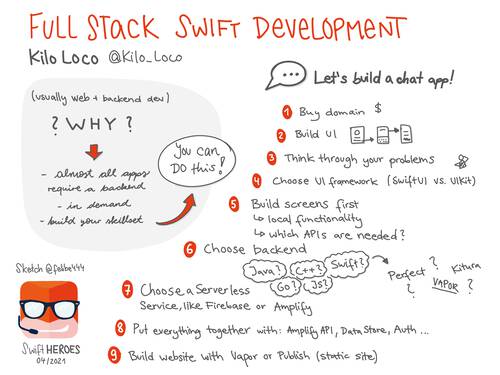 FULL STACK SWIFT DEVELOPMENT
Kilo Loco @Kilo_Loco
(usually web + backend dev)
? WHY ?
- almost all apps
require a backend
- in demand
- build your skillset
You can
DO this!
Let's build a chat app!
1 Buy domain $
2 Build UI
3 Think through your problems
4 Choose UI framework (SwiftUI vs. UIKit)
5 Build screens first
↳ local functionality
↳ which APIs are needed?
6 Choose backend
Java? C++? Swift?
Go? JS?
Perfect ? Kitura
? VAPOR ?
7 Choose a Serverless
Service, like Firebase or Amplify
8 Put everything together with: Amplify API, Data Store, Auth ...
9 Build website with Vapor or Publish (static site)
Swift HEROES
04/2021